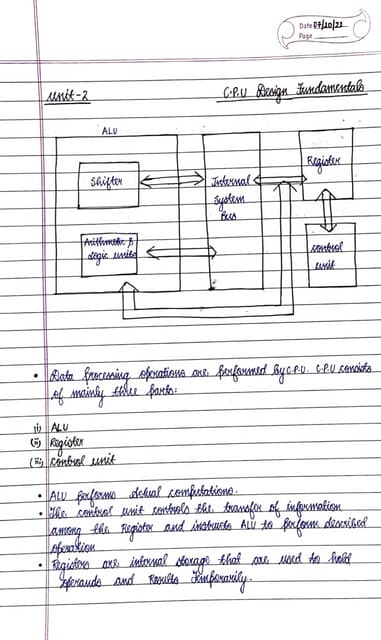 Date 07/10/22
Page
Unit-2
C.P.U Design Fundamentals
ALU
Shifter
Arithmetic &
logic units
Internal
System
Bus
Register
control
unit
• Data processing operations are performed by C.P.U. C.P.U consists
of mainly three parts:
(i) ALU
(ii) Register
(iii) control unit
• ALU performs actual computations.
• The control unit controls the transfer of information
among the Register and instructs ALU to perform described
operation
• Registers are internal storage that are used to hold
operands and Results temporarily.